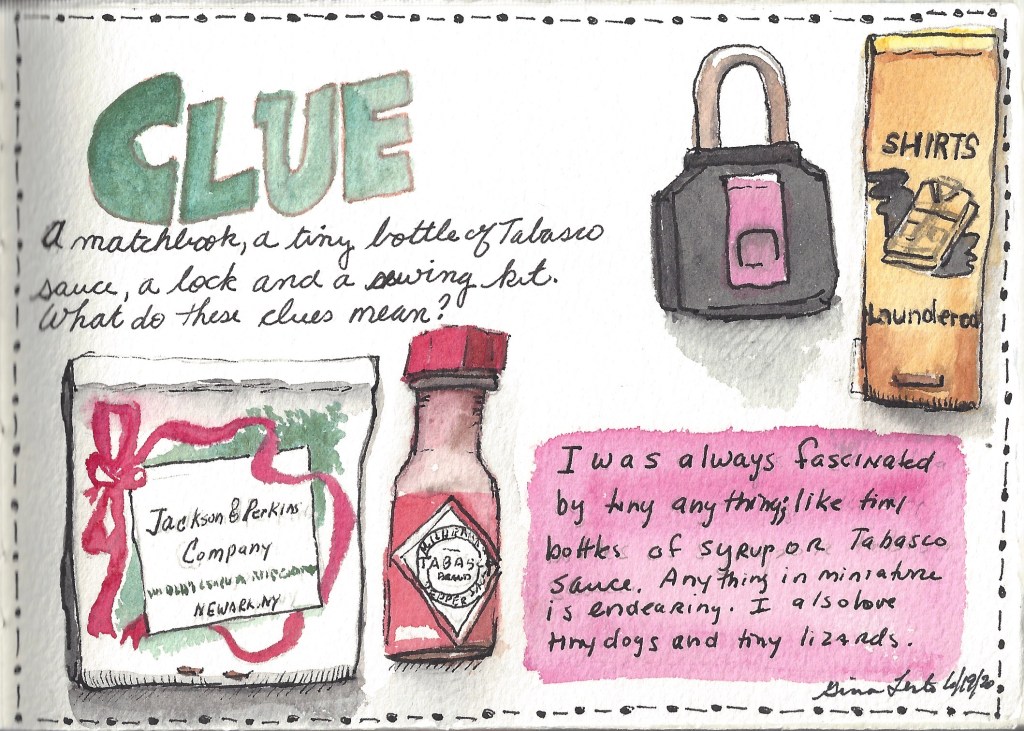 CLUE
A matchbook, a tiny bottle of Tabasco
sauce, a lock and a sewing kit.
What do these clues mean?
SHIRTS
Laundered
Jackson & Perkins
Company
NEWARK, NY
TABASC
BRAND
PEPPER SA
I was always fascinated
by tiny anything; like tiny
bottles of syrup or Tabasco
sauce. Anything in miniature
is endearing. I also love
tiny dogs and tiny lizards.
Gina 6/19/20